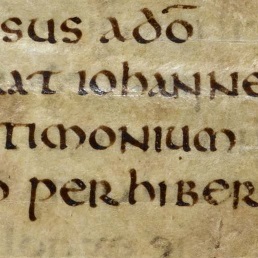 sus a dō
rat iohanne
timonium
m perhiber